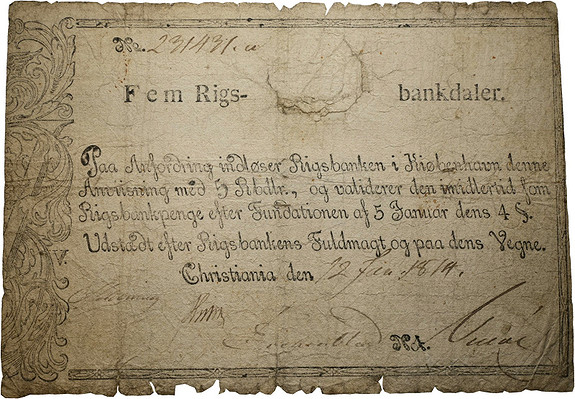 No. 231431. a
Fem Rigs- bankdaler.
Paa Anfordring indløser Rigsbanken i Kiøbenhavn denne
Anviisning med 5 Rbdlr., og validerer den imidlertid som
Rigsbankpenge efter Fundationen af 5 Januar dens 4 §.
Udstædt efter Rigsbankens Fuldmagt og paa dens Vegne.
V.
Christiania den 1814.
NA.